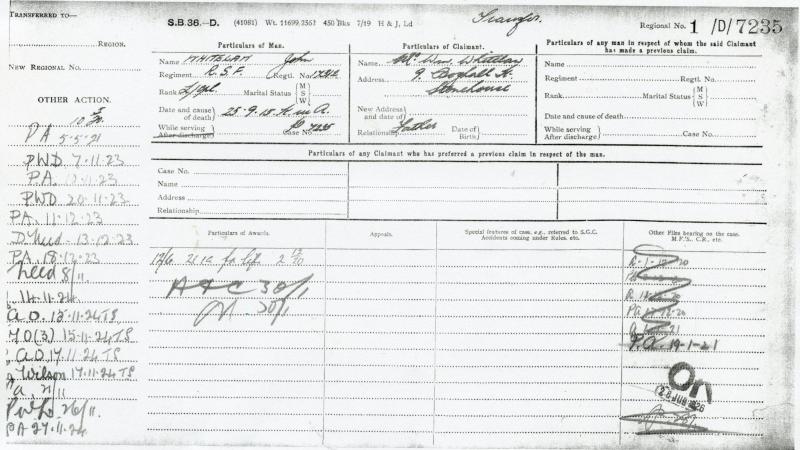 TRANSFERRED TO—
REGION.
NEW REGIONAL NO.
OTHER ACTION.
PA 5-5-21
PWD 7-11-23
P.A.
PWD 20-11-23
PA. 11-12-23
13-12-23
PA 18-12-23
8/11
14-11-24
a.D. 15-11-24 TS
MO(3) 15-11-24 TS
a.D. 17.11.24 TS
Wilson 17.11.24 TS
a. 21/11
26/11
PA 27.11.24
S.B.36.—D. (41081) Wt. 11699.2561 450 Bks 7/19 H & J, Ld
Transfer.
Regional No. 1 /D/7235
Particulars of Man.
Name WHITELAW John
Regiment R.S.F. Regtl. No.
Rank L/Cpl Marital Status {M S W
Date and cause of death} 25-9-15 K in A
While serving
After discharge} Case No. 7235
Particulars of Claimant.
Name Mr. Wm Whitelaw
Address 9 Boghall St.
Stonehouse
New Address and date of}
Relationship Father Date of Birth}
Particulars of any man in respect of whom the said Claimant has made a previous claim.
Name
Regiment Regtl. No.
Rank Marital Status {M S W
Date and cause of death
While serving
After discharge} Case No.
Particulars of any Claimant who has preferred a previous claim in respect of the man.
Case No.
Name
Address
Relationship
Particulars of Awards.
Appeals.
Special features of case, e.g., referred to S.G.C. Accidents coming under Rules. etc.
Other Files bearing on the case. M.F.'S, C.R., etc.
12/6 21 1a for life
30/1
30/1
P.a. 19-1-21
On